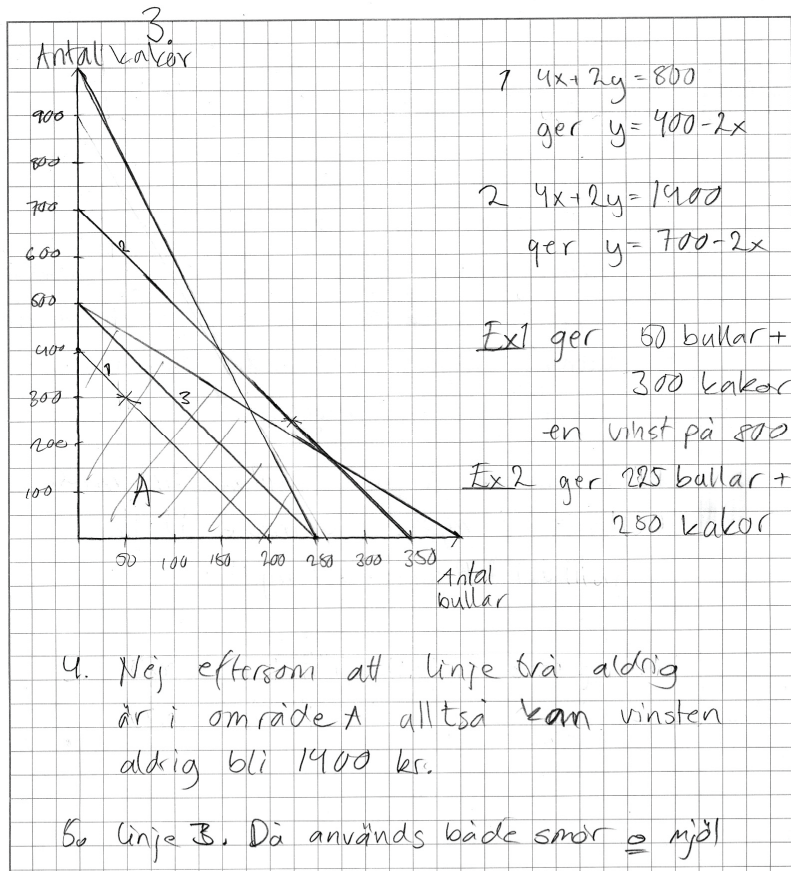 3.
Antal kakor
900
800
700
600
500
400
300
200
100
2
1
3
A
50 100 150 200 250 300 350
Antal
bullar
1 4x+2y=800
ger y=400-2x
2 4x+2y=1400
ger y=700-2x
Ex1 ger 50 bullar+
300 kakor
en vinst på 800
Ex2 ger 225 bullar+
250 kakor
4. Nej eftersom att linje två aldrig
är i område A alltså kan vinsten
aldrig bli 1400 kr.
5. linje 3. Då används både smör o mjöl